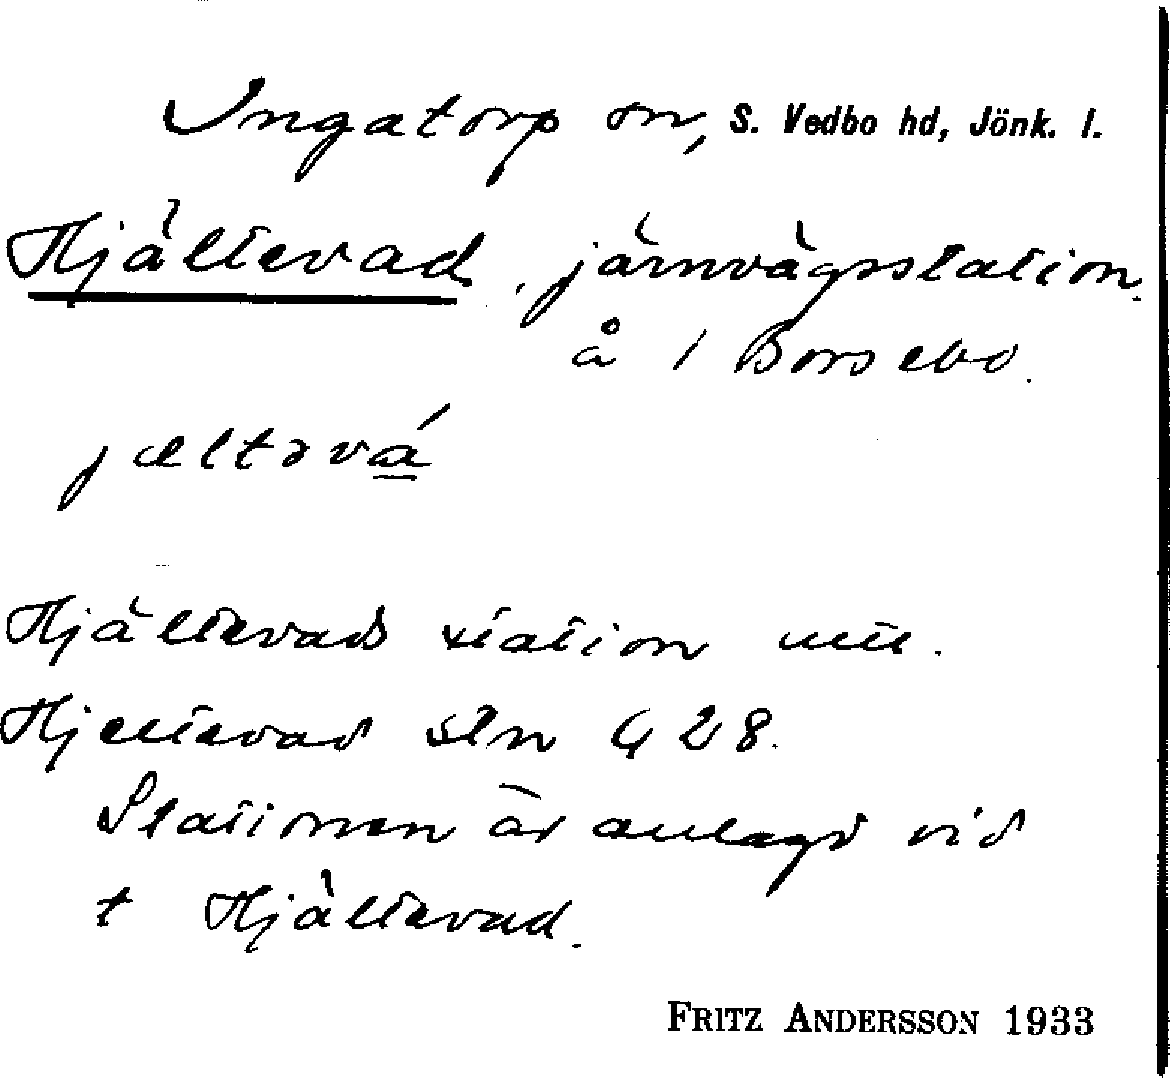 Ingatorp sn, S. Vedbo hd, Jönk. l.
Hjältevad, järnvägsstation
å 1 Borsebo.
jæltəvá
Hjältevads station
Hjeltevad stn G 28.
Stationen är anlagd vid
t Hjältevad.
FRITZ ANDERSSON 1933